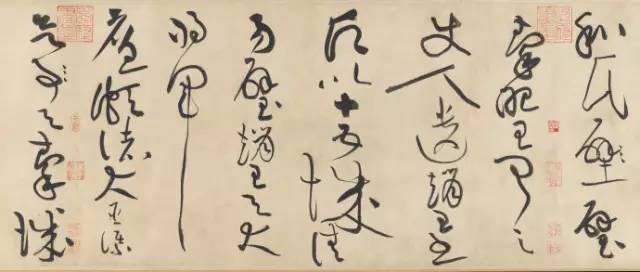 和氏璧
秦昭王聞之
使人遺趙王書
願以十五城請
易璧趙王與大
將軍
廉頗諸大臣謀
秦城